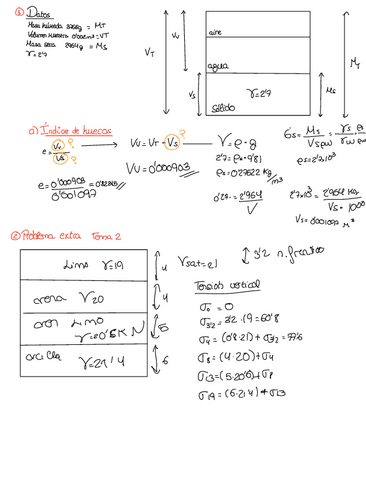 ① Datos
Masa humeda 3255g = MT
Volumen muestra 0'002m³ = VT
Masa seca 2964g = Ms
γ = 2'7
VT
Vv
Vs
aire
agua
γ = 2'7
Sólido
Ms
MT
a) Índice de huecos
e = Vv / Vs
? ?
Vv = VT - Vs ?
Vv = 0'000903
e = 0'000903 / 0'001097
γ = ρ · g
2'7 = ρs · 9'81
ρs = 0'27522 kg/m³
0'27 = 2'964 / V
Gs = Ms / Vs ρw = γs / γw
ρs = 2'7·10³
2'7·10³ = 2'964 kg / Vs
Vs = 0'001097 m³
② Problema extra Tema 2
Limo γ = 19
4
arena γ 20
4
Limo
γ = 20'6 KN
5
arcilla γ = 21'4
6
γsat = 21
3'2 n. freatico
Tensión vertical
σ0 = 0
σ3'2 = 3'2 · 19 = 60'8
σ4 = (0'8·21) + σ3'2 = 77'6
σ8 = (4·20) + σ4
σ13 = (5·20'6) + σ8
σ19 = (6·21'4) + σ13